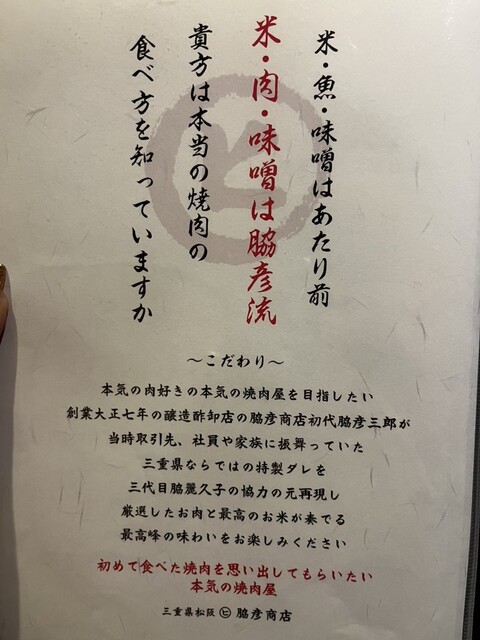 米・魚・味噌はあたり前
米・肉・味噌は脇彦流
貴方は本当の焼肉の
食べ方を知っていますか
～こだわり～
本気の肉好きの本気の焼肉屋を目指したい
創業大正七年の醸造酢卸店の脇彦商店初代脇彦三郎が
当時取引先、社員や家族に振舞っていた
三重県ならではの特製ダレを
三代目脇麗久子の協力の元再現し
厳選したお肉と最高のお米が奏でる
最高峰の味わいをお楽しみください
初めて食べた焼肉を思い出してもらいたい
本気の焼肉屋
三重県松阪 ㋪ 脇彦商店